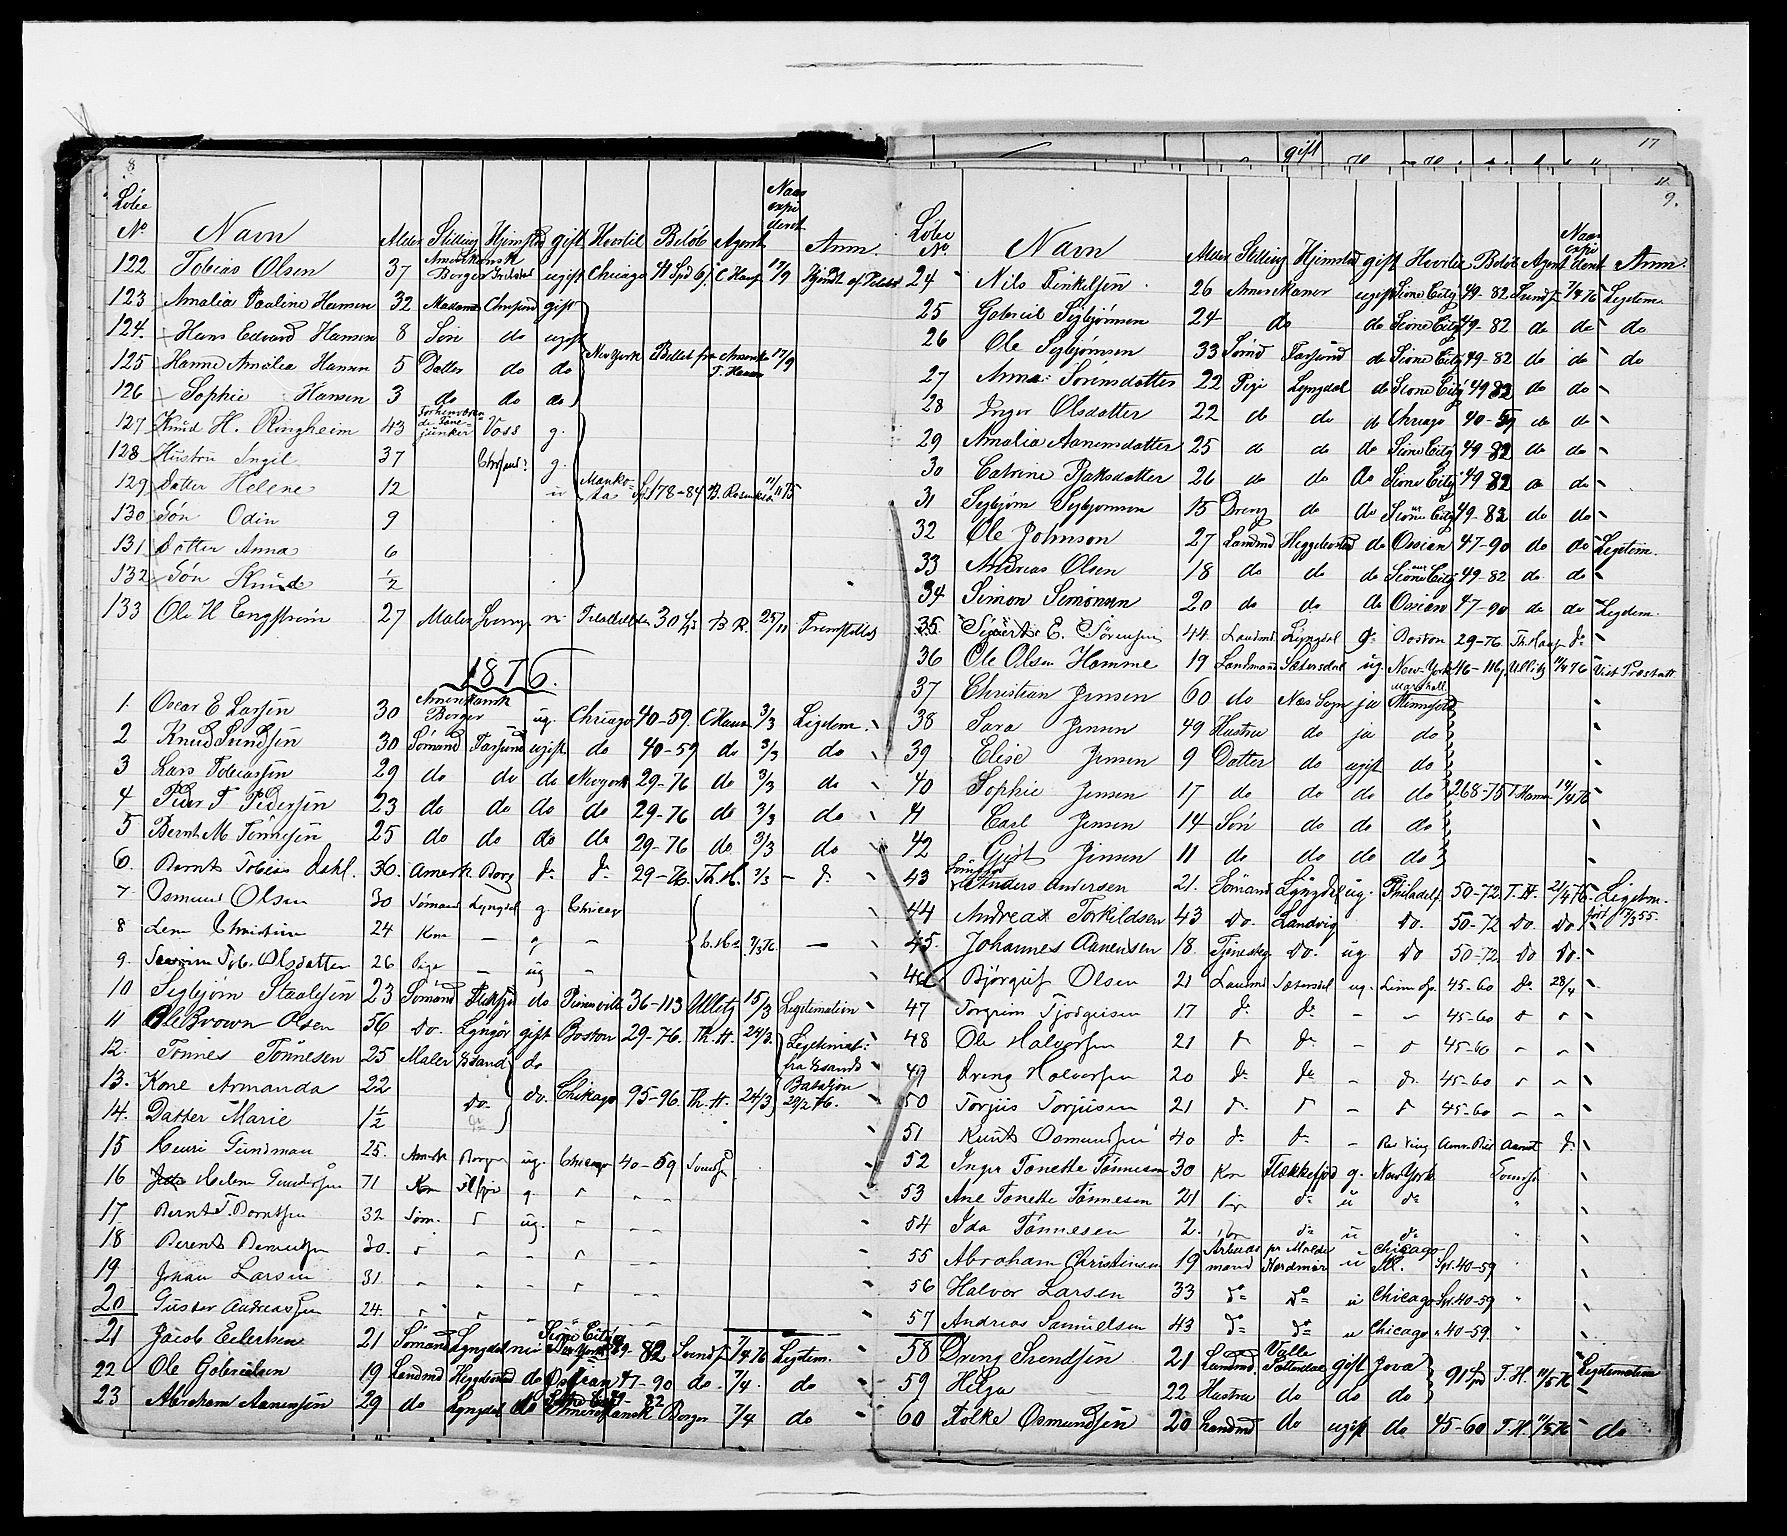 8
Löbe No Navn Alder Stilling Hjemsted gift Hvortil Beløb Agent Naar expideret Anm.
122 Tobias Olsen 37 Amerikansk Borger ugift Chicago C. Hans 17/9
123 Amalia Pauline Hansen 32 Madame Chrsund gift
124. Hans Edvard Hansen 8 Søn do ugift
125 Hanne Amalia Hansen 5 Datter do do New York Billet fra Amerika T. Hansen 17/9
126 Sophie Hansen 3 do do do
127 Knud H. Ringheim 43 Voss g.
128 Hustru Ingil 37 Chrsund g.
129 Datter Helene 12 u Mankota 178-84 11/11 75
130 Søn Odin 9
131 Datter Anna 6
132 Søn Knud 1/2
133 Ole H Engstrøm 27 Maler 30 B R. 25/11
1876.
1. Oscar E Larsen 30 Amerikansk Borger ug. Chicago 40-59 C Hans 3/3 Ligitem.
2 Knud Svendsen 30 Sømand Farsund ugift do 40-59 do 3/3 do
3 Lars Tobiassen 29 do do do Newyork 29-76 do 3/3 do
4 Peder T Pedersen 23 do do do do 29-76 do 3/3 do
5 Bernt M Tønnesen 25 do do do do 29-76 do 3/3 do
6. Bernt Tobias Dahl. 30. Amerk Borg do do 29-76. Th. H. 3/3 - do
7 Osmund Olsen 30 Sømand Lyngdal g. Chicago
8 Lene Christine 24 Kone - g -
9. Tob. Olsdatter 26 Pige - ug -
10 Sigbjørn Staalesen 23 Sømand do 36-113 Ullitz 15/3 Legitemation
11 Ole Brown Olsen 56 do. Lyngør gift Boston 29-76. Th. H. 24/3
12. Tønnes Tønnesen 25 Maler do
13. Kone Armanda 22 do. do. Chikago 95-96. Th. H. 24/3 Batalion
14. Datter Marie 1 1/2
15 Henri Gundman 25. Amrk Borger ug. Chicago 40-59 Svends
16 Helene 71 Kone g.
17. Bernt T. Berntsen 32 Søm. ug. -
18 Berent Berentsen 30.
19. Johan Larsen 31
20 Gustav Andreassen 24.
21 Jacob Eilertsen 21 Sømand Lyngdal Sioux City 49-82 Svends 7/4 76 Ligitem.
22 Ole Gabrielsen 19 Landmd Heggebostad do Ossian 47-90 do. 7/4. do
23 Abraham Aanensen 29 do Lyngdal do Amerikansk Borger 7/4 do
17
gift
9.
Løbe No. Navn Alder Stilling Hjemsted gift Hvortil Beløb Agent Naar expident Anm.
24 Nils Tinkelsen 26 Amerikaner ugift Sioux City 49-82 Svends 7/4 76 Legitem
25 Gabriel Sigbjørnsen 24 do do Sioux City 49-82 do do do
26 Ole Sigbjørnsen 33 Sømd Farsund do Sioux City 49-82 do do do
27 Anna Sørensdatter 22 Pige Lyngdal do Sioux City 49 82 do do
28 Inger Olsdatter 22 do do do Chicago 40-59 do do
29 Amalia Aanensdatter 25 do do do Sioux City 49-82 do do
30 Catrine 26 do do do Sioux City 49 82 do do
31 Sigbjørn Sigbjørnsen 15 Dreng do do Sioux City 49-82 do do
32 Ole Johnson 27 Landmd Heggebostad do Ossian 47-90 do do Legitem.
33 Andreas Olsen 18 do do do Sioux City 49-82 do do
34 Simon Simonsen 20 do do do Ossian 47-90 do do Legitem.
35 Sivert E. Sørensen 44. Landmd Lyngdal g Boston 29-76 Th. Hans do
36 Ole Olsen Homme 19 Landmand Sætersdal ug. New-York 46-116 Ullitz 76
37 Christian Jensen 60 do Næs Sogn ja Marshall Minnesota
38 Sara Jensen 49 Hustru do ja do
39 Elise Jensen 9 Datter do ugift do
40 Sophie Jensen 17 do do do do 268-75 T Hansen 14/4 76
41 Carl Jensen 14 Søn do do do
42 Gert Jensen 11 do do do do
43 Anders Andersen 21. Sømand Lyngdal ug. Philadelf. 50-72 T. H. 21/4 76 Ligitem.
44 Andreas Torkildsen 43 do. Landvig do. 50-72 do. do født 17/3 55.
45. Johannes Aanensen 18. do. ug. do 50-72 do do.
46 Bjørguf Olsen 21 Landmd Sætersdal ug. 45-60 do 28/4
47 Torgrim 17 do do - - 45-60
48 Ole Halvorsen 21 do do - 45-60 - -
49 Dreng Halvorsen 20 do do - do 45-60 -
50 Torjus Torjusen 21 - 45-60 - -
51 Knut Osmundsen 40 do do - do
52 Inger Tonette Tønnesen 30 Kone Flekkefjord g. New York. Svends
53 Ane Tonette Tønnesen 21 do u do
54 Ida Tønnesen 2. do u do
55 Abraham Christensen 19 Arbeidsmand pr Molde Nordmør u Chicago Ill. Spd. 40-59
56 Halvor Larsen 33 do do u Chicago Spd. 40-59
57 Andreas Samuelsen 43 do do u Chicago 40-59.
58 Dreng Svendsen 21 Landmd. Valle Sætersdal gift Jova
59 Helga 22 Hustru do do do 91 Spd T. H. 11/5 76 Legitemation
60 Folke Osmundsen 20 Landmd do ugift do 45-60 T. H. 11/5 76 do